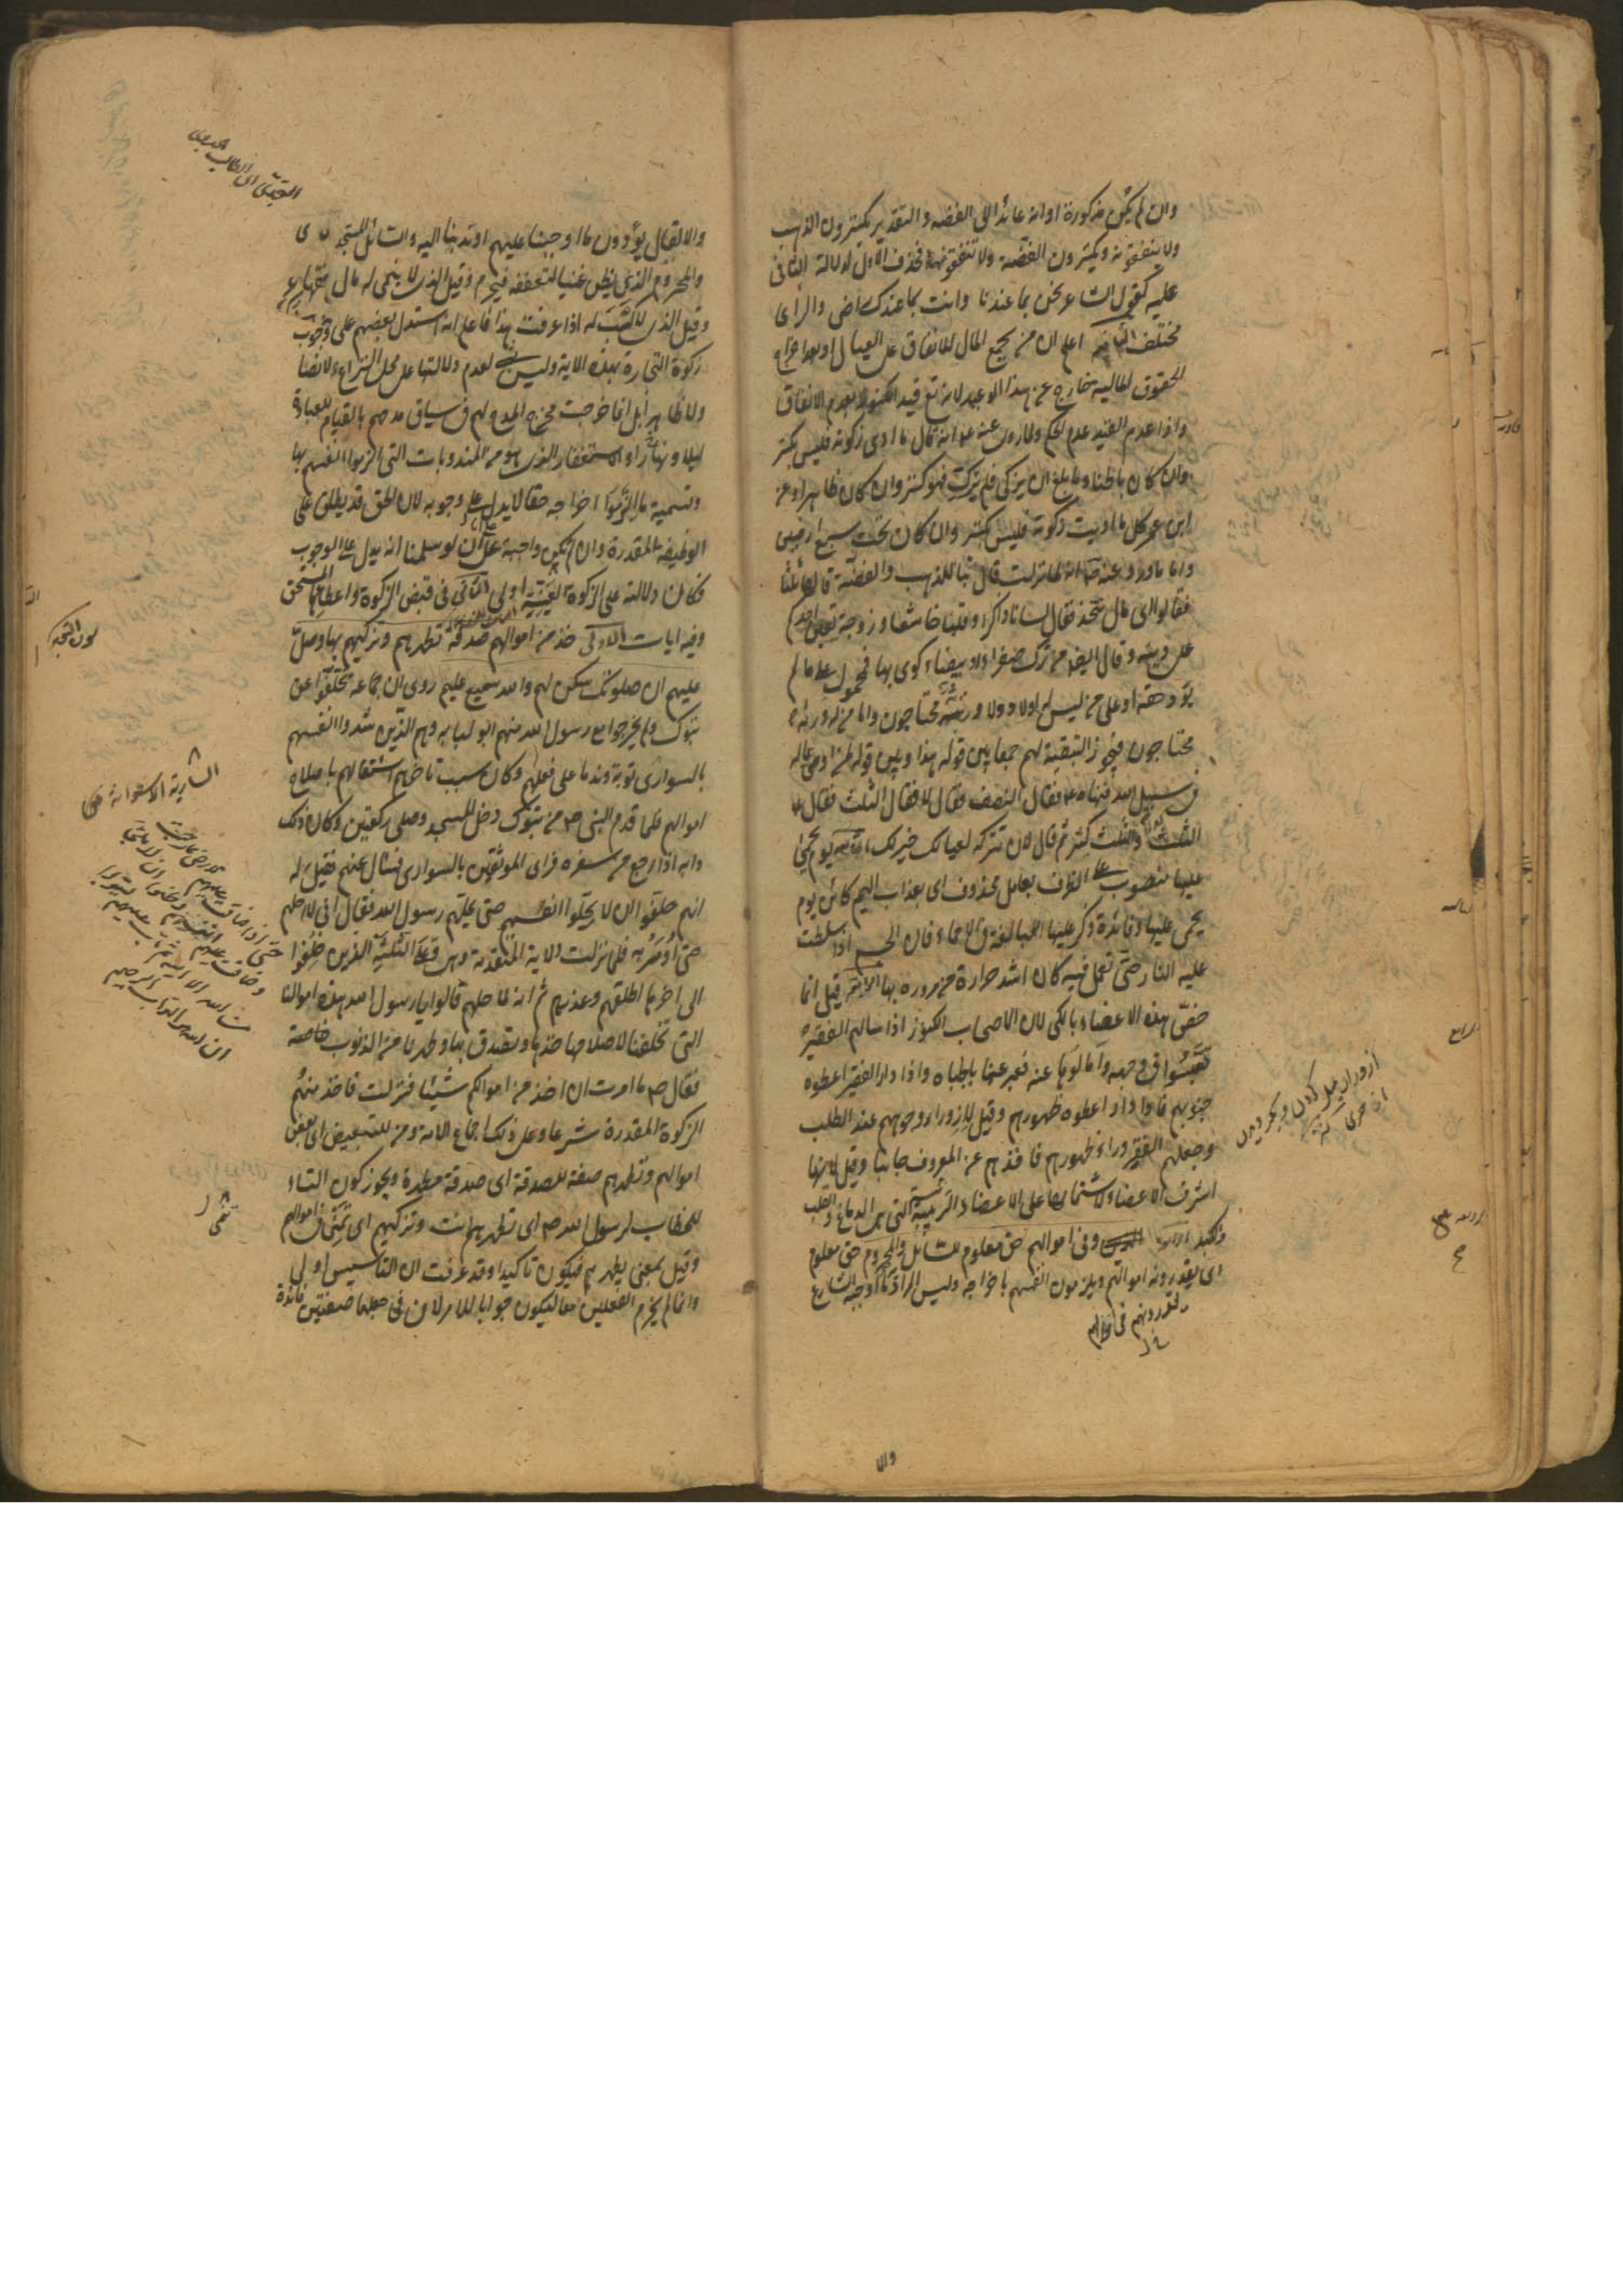 وان لم يكن مذكورة او انه عائد الى الفضة والتقدير يكنزون الذهب
ولا ينفقونه ويكنزون الفضة ولا ينفقونها فحذف الاول لدلالة الثانى
عليه كقول الشاعر نحن بما عندنا وانت بما عندك راض والراى
مختلف الثانية اعلم ان من يجمع المال للانفاق على العيال او بعد اخراج
الحقوق المالية خارج عن هذا الوعيد لانه تع قيد الكنز بعدم الانفاق
واذا عدم القيد عدم الحكم ولما روى عنه ع انه قال ما ادى زكوته فليس بكنز
وان كان باطنا وما بلغ ان يزكى فلم يزك فهو كنز وان كان ظاهرا وعن
ابن عمر كل ما اديت زكوته فليس بكنز وان كان تحت سبع ارضين
واما ما ورد عنه ص انه لما نزلت قال تبا للذهب والفضة قالها ثلثا
فقالوا اى مال نتخذ فقال لسانا ذاكرا وقلبا خاشعا وزوجة تعين احدكم
على دينه وقال ايضا من ترك صفراء او بيضاء كوى بها فمحمول على ما لم
يؤد حقه او على من ليس له اولاد ولا ورثة محتاجون واما من له ورثة
محتاجون فيجوز التبقية لهم جمعا بين قوله هذا وبين قوله لمن اوصى بماله
فى سبيل الله فنهاه ع فقال النصف فقال لا فقال الثلث فقال ع
الثلث والثلث كثير ثم قال لان تتركه لعيالك خير لك الثالثة يوم يحمى
عليها منصوب على الظرف بعامل محذوف اى بعذاب اليم كائن يوم
يحمى عليها وفائدة ذكر عليها المبالغة فى الاحماء فان الجسم اذا سلطت
عليه النار حتى تعمل فيه كان اشد حرارة من مروره بها الرابعة قيل انما
خص هذه الاعضاء بالكى لان الاصحاب الكنوز اذا سالهم الفقير
تعبسوا فى وجهه وامالوها عنه فعبر عنها بالجباه واذا دار الفقير اعطوه
جنوبهم فاذا دار اعطوه ظهورهم وقيل لازورار وجوههم عند الطلب
وجعلهم الفقير وراء ظهورهم فاخذهم عن المعروف جانبا وقيل لانها
اشرف الاعضاء لاشتمالها على الاعضاء الرئيسية التى هى الدماغ والقلب
والكبد وفى اموالهم حق معلوم للسائل والمحروم حق معلوم
اى يقدرونه اموالهم ويلزمون انفسهم باخراجه وليس المراد ما اوجبه الشارع
والا
ازوران ميل كردن
والا لقال يؤدون ما اوجبنا عليهم او ندبنا اليه والسائل المستجدى
والمحروم الذى يظن غنيا لتعففه فيحرم وقيل الذى لا ينمى له مال
وقيل الذى لا كسب له اذا عرفت هذا فاعلم انه استدل بعضهم على وجوب
زكوة التجارة بهذه الاية وليس بشىء لعدم دلالتها على محل النزاع لا نصا
ولا ظاهرا بل انما خرجت مخرج المدح لهم فى سياق مدحهم بالقيام للعبادة
ليلا ونهارا والاستغفار الذى هو من المندوبات التى الزموا انفسهم بها
وتسمية ما التزموا اخراجه حقا لا يدل على وجوبه لان الحق قد يطلق على
الوظيفة المقدرة وان لم تكن واجبة على ان لو سلمنا انه يدل على الوجوب
فكان دلالته على الزكوة العينية اولى الثانى فى قبض الزكوة واعطائها المستحق
وفيه ايات الاولى خذ من اموالهم صدقة تطهرهم وتزكيهم بها وصل
عليهم ان صلوتك سكن لهم والله سميع عليم روى ان جماعة تخلفوا عن
تبوك ولم يخرجوا مع رسول الله منهم ابو لبابه وهم الذين شدوا انفسهم
بالسوارى توبة وندما على فعلهم وكان سبب تاخرهم اشتغالهم باصلاح
اموالهم فلما قدم النبى ص من تبوك دخل المسجد وصلى ركعتين وكان ذلك
دابه اذا رجع من سفره فراى الموثقين بالسوارى فسال عنهم فقيل له
انهم حلفوا ان لا يحلوا انفسهم حتى يحلهم رسول الله فقال انى لا احلهم
حتى اومر به فلما نزلت الاية المتقدمة وهى وعلى الثلثة الذين خلفوا
الى اخرها اطلقهم وعذرهم ثم انه لما حلهم قالوا يا رسول الله هذه اموالنا
التى تخلفنا لاصلاحها خذها وتصدق بها وطهرنا من الذنوب خاصة
فقال ص ما امرت ان اخذ من اموالكم شيئا فنزلت فاخذ منهم
الزكوة المقدرة شرعا وعلى ذلك اجماع الامة ومن للتبعيض اى بعض
اموالهم وتطهرهم صفة للصدقة اى صدقة مطهرة ويجوز كون التاء
للخطاب لرسول الله ص اى تطهرهم انت وتزكيهم اى تنمى اموالهم
وقيل بمعنى يطهرهم فيكون تاكيدا وقد عرفت ان التاسيس اولى
وانما لم يجزم الفعلين معا ليكون جوابا للامر لان فى جعلهما صفتين فائدة
السارية الاسطوانة
حتى اذا ضاقت عليهم الارض بما رحبت
وضاقت عليهم انفسهم وظنوا ان لا ملجا
من الله الا اليه ثم تاب عليهم ليتوبوا
ان الله هو التواب الرحيم